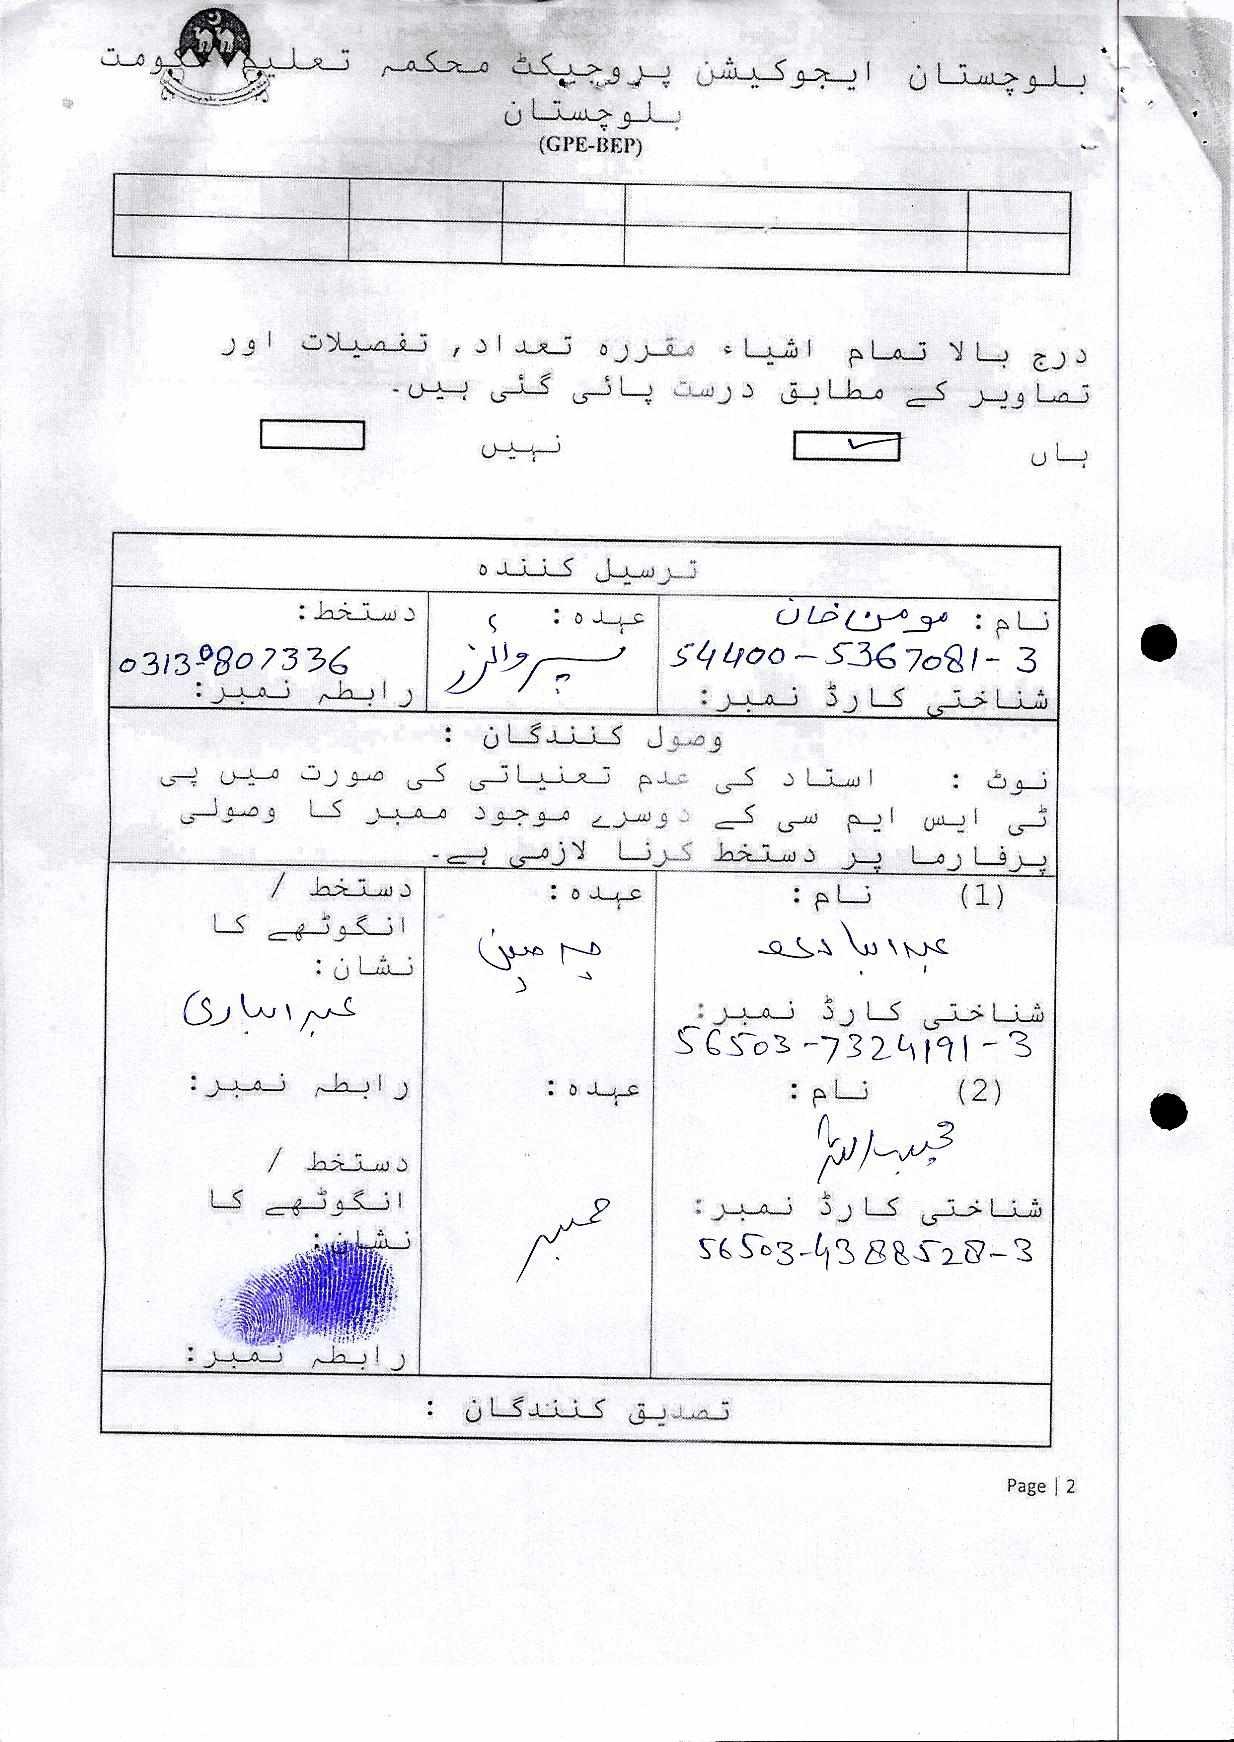 بلوچستان ایجوکیشن پروجیکٹ محکمہ تعلیم حکومت
بلوچستان
(GPE-BEP)
درج بالا تمام اشیاء مقررہ تعداد, تفصیلات اور
تصاویر کے مطابق درست پائی گئی ہیں۔
ہاں ✓ نہیں
ترسیل کنندہ
نام: مومن خان
54400-5367081-3
شناختی کارڈ نمبر:
عہدہ:
سپروائزر
دستخط:
03139807336
رابطہ نمبر:
وصول کنندگان :
نوٹ : استاد کی عدم تعنیاتی کی صورت میں پی
ٹی ایس ایم سی کے دوسرے موجود ممبر کا وصولی
پرفارما پر دستخط کرنا لازمی ہے۔
(1) نام:
شناختی کارڈ نمبر:
56503-7324191-3
عہدہ:
چیرمین
دستخط /
انگوٹھے کا
نشان:
عبدالباری
رابطہ نمبر:
(2) نام:
شناختی کارڈ نمبر:
56503-4388528-3
عہدہ:
ممبر
دستخط /
انگوٹھے کا
نشان:
رابطہ نمبر:
تصدیق کنندگان :
Page | 2